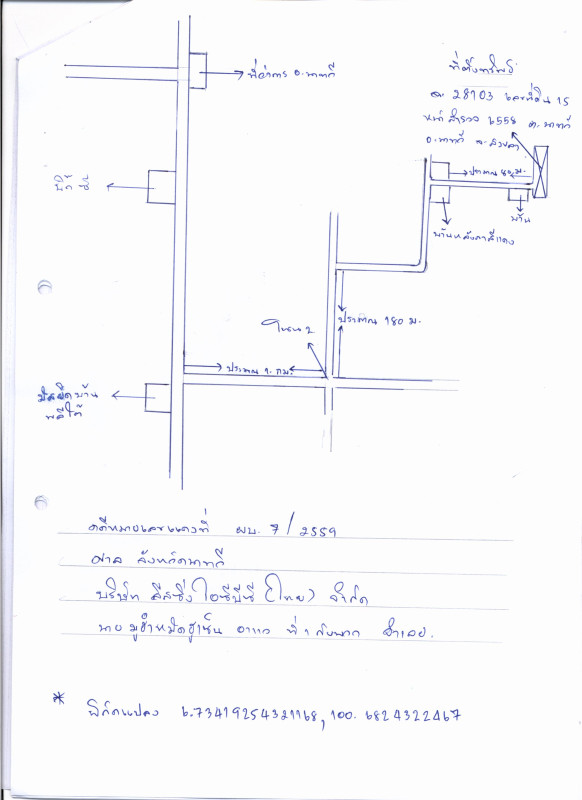 ที่ว่าการ อ.นาทวี
ที่ตั้งทรัพย์
ฉ. 28103 เลขที่ดิน 15
หน้าสำรวจ 6558 ต. นาทวี
อ.นาทวี จ.สงขลา
บิ๊ก ซี
ประมาณ 40 ม.
บ้าน
บ้านหลังคาสีแดง
ประมาณ 180 ม.
โซน 2
ประมาณ 1 กม.
มัสยิดบ้าน
พลีใต้
คดีหมายเลขแดงที่ ผบ. 7/2559
ศาล จังหวัดนาทวี
บริษัท ลีสซิ่ง ไอซีบีซี (ไทย) จำกัด
นาย มูฮำหมัดฮูเซ็น อาแว ที่ 1 กับพวก จำเลย.
* พิกัดแปลง 6.73419254321168, 100.6824322467